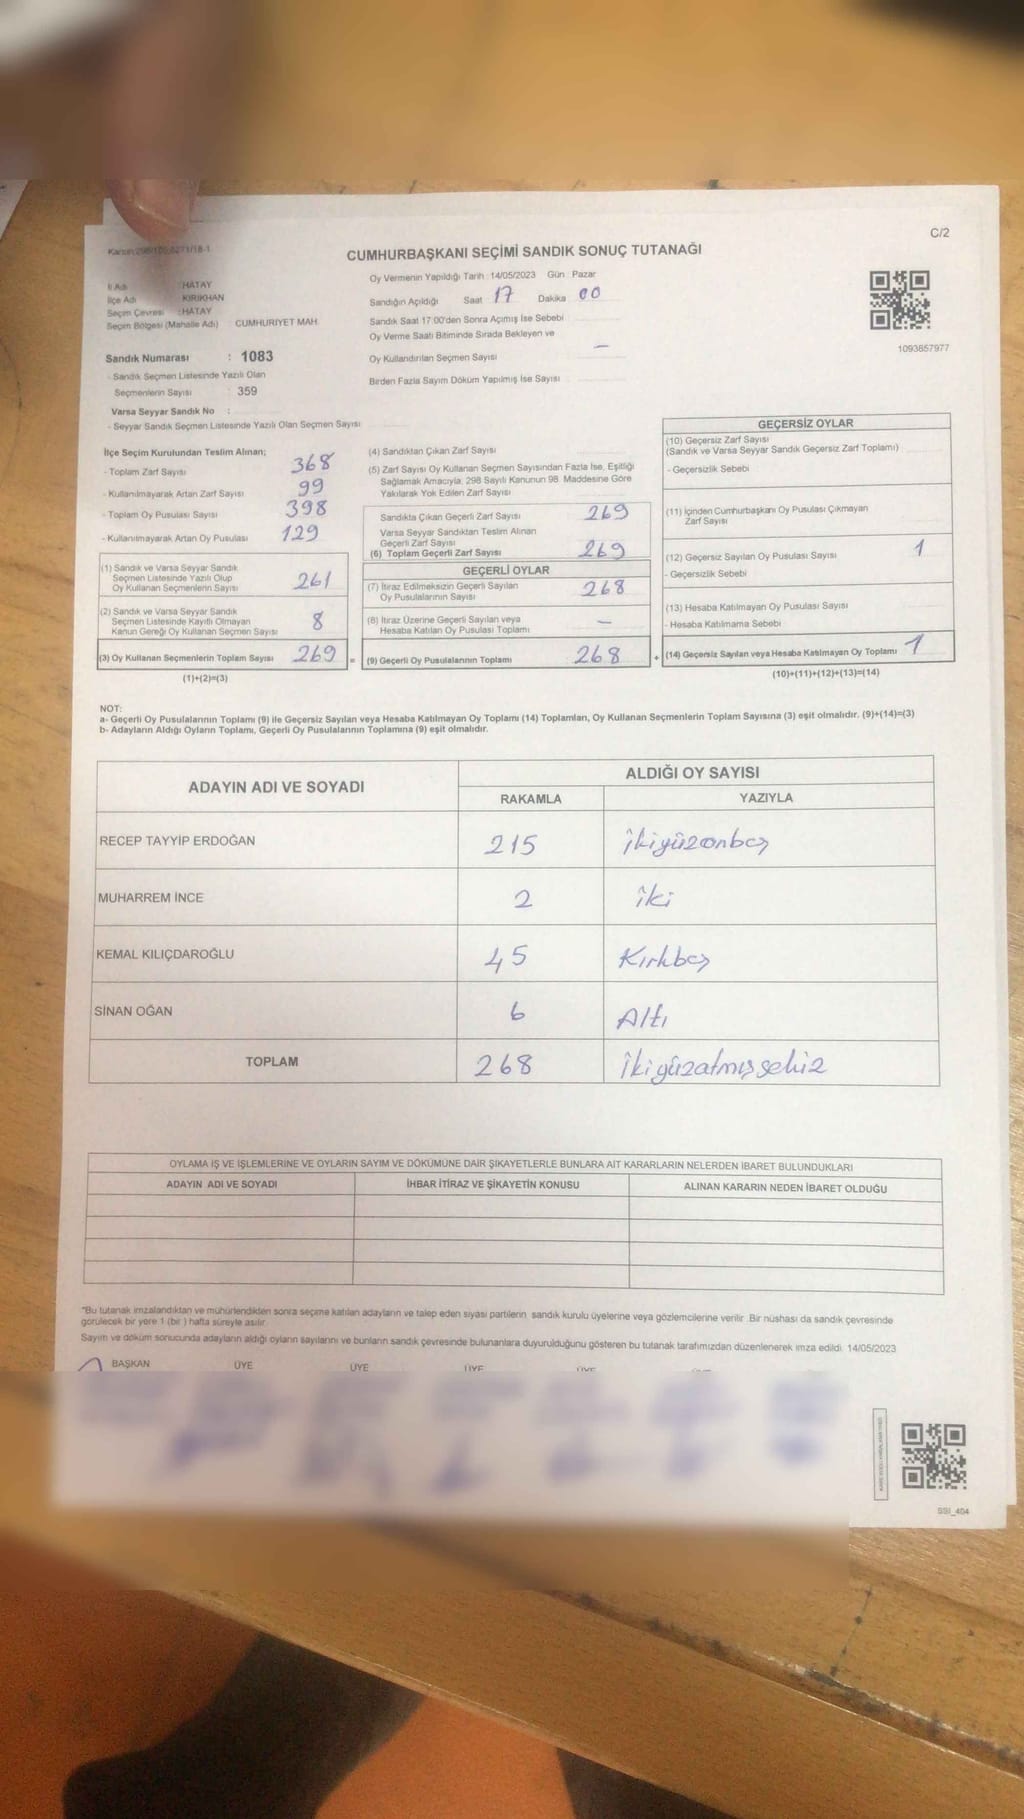 C/2
CUMHURBAŞKANI SEÇİMİ SANDIK SONUÇ TUTANAĞI
İl Adı : HATAY
İlçe Adı KIRIKHAN
Seçim Çevresi : HATAY
Seçim Bölgesi (Mahalle Adı) CUMHURİYET MAH.
Oy Vermenin Yapıldığı Tarih : 14/05/2023 Gün : Pazar
Sandığın Açıldığı Saat 17 Dakika 00
Sandık Saat 17:00'den Sonra Açımış İse Sebebi
Oy Verme Saati Bitiminde Sırada Bekleyen ve
Oy Kullandırılan Seçmen Sayısı —
Birden Fazla Sayım Döküm Yapılmış İse Sayısı
1093857977
Sandık Numarası : 1083
- Sandık Seçmen Listesinde Yazılı Olan
Seçmenlerin Sayısı : 359
Varsa Seyyar Sandık No :
- Seyyar Sandık Seçmen Listesinde Yazılı Olan Seçmen Sayısı
İlçe Seçim Kurulundan Teslim Alınan;
- Toplam Zarf Sayısı 368
- Kullanılmayarak Artan Zarf Sayısı 99
- Toplam Oy Pusulası Sayısı 398
- Kullanılmayarak Artan Oy Pusulası 129
(1) Sandık ve Varsa Seyyar Sandık
Seçmen Listesinde Yazılı Olup
Oy Kullanan Seçmenlerin Sayısı 261
(2) Sandık ve Varsa Seyyar Sandık
Seçmen Listesinde Kayıtlı Olmayan
Kanun Gereği Oy Kullanan Seçmen Sayısı 8
(3) Oy Kullanan Seçmenlerin Toplam Sayısı 269 =
(1)+(2)=(3)
(4) Sandıktan Çıkan Zarf Sayısı
(5) Zarf Sayısı Oy Kullanan Seçmen Sayısından Fazla İse, Eşitliği
Sağlamak Amacıyla, 298 Sayılı Kanunun 98. Maddesine Göre
Yakılarak Yok Edilen Zarf Sayısı
Sandıkta Çıkan Geçerli Zarf Sayısı 269
Varsa Seyyar Sandıktan Teslim Alınan
Geçerli Zarf Sayısı
(6) Toplam Geçerli Zarf Sayısı 269
GEÇERLİ OYLAR
(7) İtiraz Edilmeksizin Geçerli Sayılan
Oy Pusulalarının Sayısı 268
(8) İtiraz Üzerine Geçerli Sayılan veya
Hesaba Katılan Oy Pusulası Toplamı —
(9) Geçerli Oy Pusulalarının Toplamı 268 +
GEÇERSİZ OYLAR
(10) Geçersiz Zarf Sayısı
(Sandık ve Varsa Seyyar Sandık Geçersiz Zarf Toplamı)
- Geçersizlik Sebebi
(11) İçinden Cumhurbaşkanı Oy Pusulası Çıkmayan
Zarf Sayısı
(12) Geçersiz Sayılan Oy Pusulası Sayısı 1
- Geçersizlik Sebebi
(13) Hesaba Katılmayan Oy Pusulası Sayısı
- Hesaba Katılmama Sebebi
(14) Geçersiz Sayılan veya Hesaba Katılmayan Oy Toplamı 1
(10)+(11)+(12)+(13)=(14)
NOT:
a- Geçerli Oy Pusulalarının Toplamı (9) ile Geçersiz Sayılan veya Hesaba Katılmayan Oy Toplamı (14) Toplamları, Oy Kullanan Seçmenlerin Toplam Sayısına (3) eşit olmalıdır. (9)+(14)=(3)
b- Adayların Aldığı Oyların Toplamı, Geçerli Oy Pusulalarının Toplamına (9) eşit olmalıdır.
ADAYIN ADI VE SOYADI ALDIĞI OY SAYISI
RAKAMLA YAZIYLA
RECEP TAYYİP ERDOĞAN 215 ikiyüzonbeş
MUHARREM İNCE 2 iki
KEMAL KILIÇDAROĞLU 45 Kırkbeş
SİNAN OĞAN 6 Altı
TOPLAM 268 ikiyüzatmışsekiz
OYLAMA İŞ VE İŞLEMLERİNE VE OYLARIN SAYIM VE DÖKÜMÜNE DAİR ŞİKAYETLERLE BUNLARA AİT KARARLARIN NELERDEN İBARET BULUNDUKLARI
ADAYIN ADI VE SOYADI İHBAR İTİRAZ VE ŞİKAYETİN KONUSU ALINAN KARARIN NEDEN İBARET OLDUĞU
*Bu tutanak imzalandıktan ve mühürlendikten sonra seçime katılan adayların ve talep eden siyasi partilerin sandık kurulu üyelerine veya gözlemcilerine verilir. Bir nüshası da sandık çevresinde
görülecek bir yere 1 (bir ) hafta süreyle asılır.
Sayım ve döküm sonucunda adayların aldığı oyların sayılarını ve bunların sandık çevresinde bulunanlara duyurulduğunu gösteren bu tutanak tarafımızdan düzenlenerek imza edildi. 14/05/2023
BAŞKAN ÜYE ÜYE ÜYE ÜYE
SSI_404